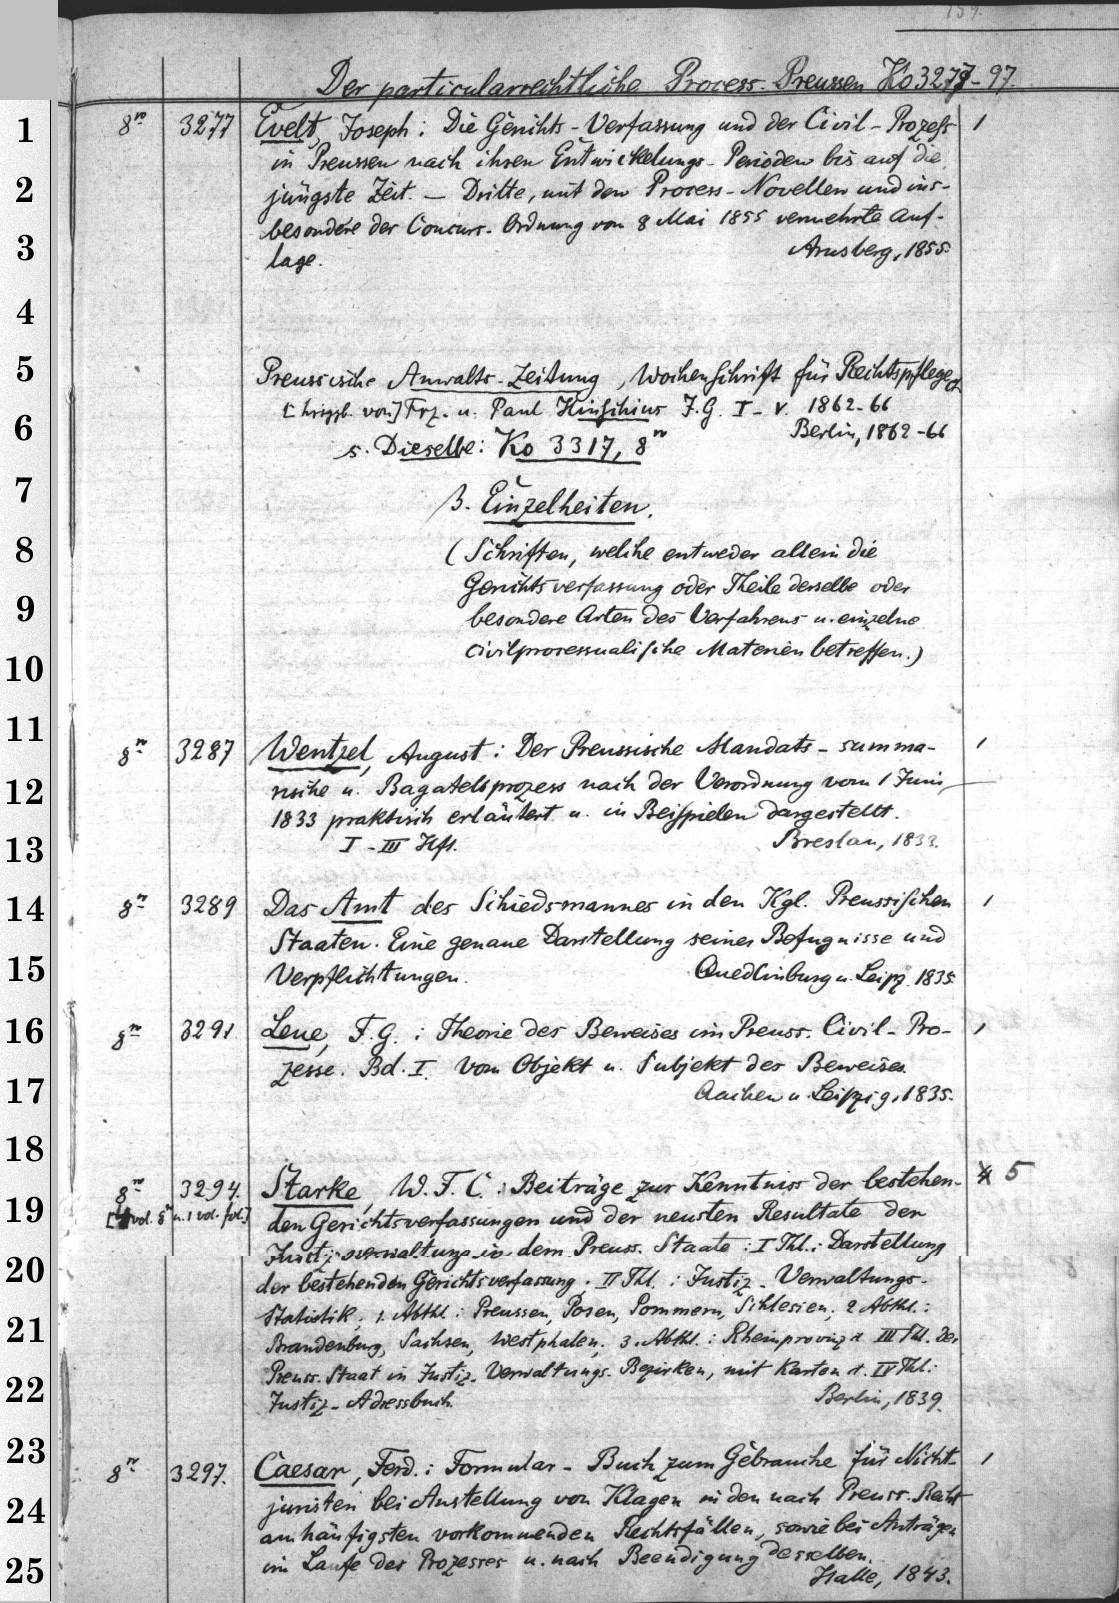 159.
Der particularrechtliche Process. Preussen Ko 3277-97.
8º 3277 Evelt, Joseph: Die Gerichts-Verfassung und der Civil-Prozess 1
in Preussen nach ihren Entwickelungs-Perioden bis auf die
jüngste Zeit. — Dritte, mit den Process-Novellen und ins-
besondere der Concurs-Ordnung von 8 Mai 1855 vermehrte Auf-
lage. Arnsberg, 1855.
Preussische Anwalts-Zeitung, Wochenschrift für Rechtspflege
[hrsggb. von] Frz. u. Paul Hinschius J.G. I-V. 1862-66
Berlin, 1862-66
s. Dieselbe: Ko 3317, 8º
β. Einzelheiten.
(Schriften, welche entweder allein die
Gerichtsverfassung oder Theile derselbe oder
besondere Arten des Verfahrens u. einzelne
civilprocessualische Materien betreffen.)
8º 3287 Wentzel, August: Der Preussische Mandats-summa- 1
rische u. Bagatellprozess nach der Verordnung vom 1 Juni
1833 praktisch erläutert u. in Beispielen dargestellt.
I-III Hft. Breslau, 1833.
8º 3289 Das Amt des Schiedsmannes in den Kgl. Preussischen 1
Staaten. Eine genaue Darstellung seiner Befugnisse und
Verpflichtungen. Quedlinburg u. Leipz. 1835
8º 3291 Leue, F.G.: Theorie des Beweises im Preuss. Civil-Pro- 1
zesse. Bd. I. Vom Objekt u. Subjekt des Beweises.
Aachen u. Leipzig, 1835.
8º 3294. Starke, W.F.C.: Beiträge zur Kenntniss der bestehen- 5
[4 vol. 8º u. 1 vol. fol.] den Gerichtsverfassungen und der neusten Resultate der
Justizverwaltung in dem Preuss. Staate: I Thl.: Darstellung
der bestehenden Gerichtsverfassung. II Thl.: Justiz-Verwaltungs-
Statistik, 1. Abthl.: Preussen, Posen, Pommern, Schlesien; 2 Abthl.:
Brandenburg, Sachsen, Westphalen; 3. Abthl.: Rheinprovinz. III Thl. Der
Preuss. Staat in Justiz-Verwaltungs-Bezirken, mit Karten. IV Thl:
Justiz-Adressbuch. Berlin, 1839.
8º 3297. Caesar, Ferd.: Formular-Buch zum Gebrauche für Nicht- 1
juristen bei Anstellung von Klagen in den nach Preuss. Recht
am häufigsten vorkommenden Rechtsfällen, sowie bei Anträgen
im Laufe des Prozesses u. nach Beendigung desselben.
Halle, 1843.
1
2
3
4
5
6
7
8
9
10
11
12
13
14
15
16
17
18
19
20
21
22
23
24
25